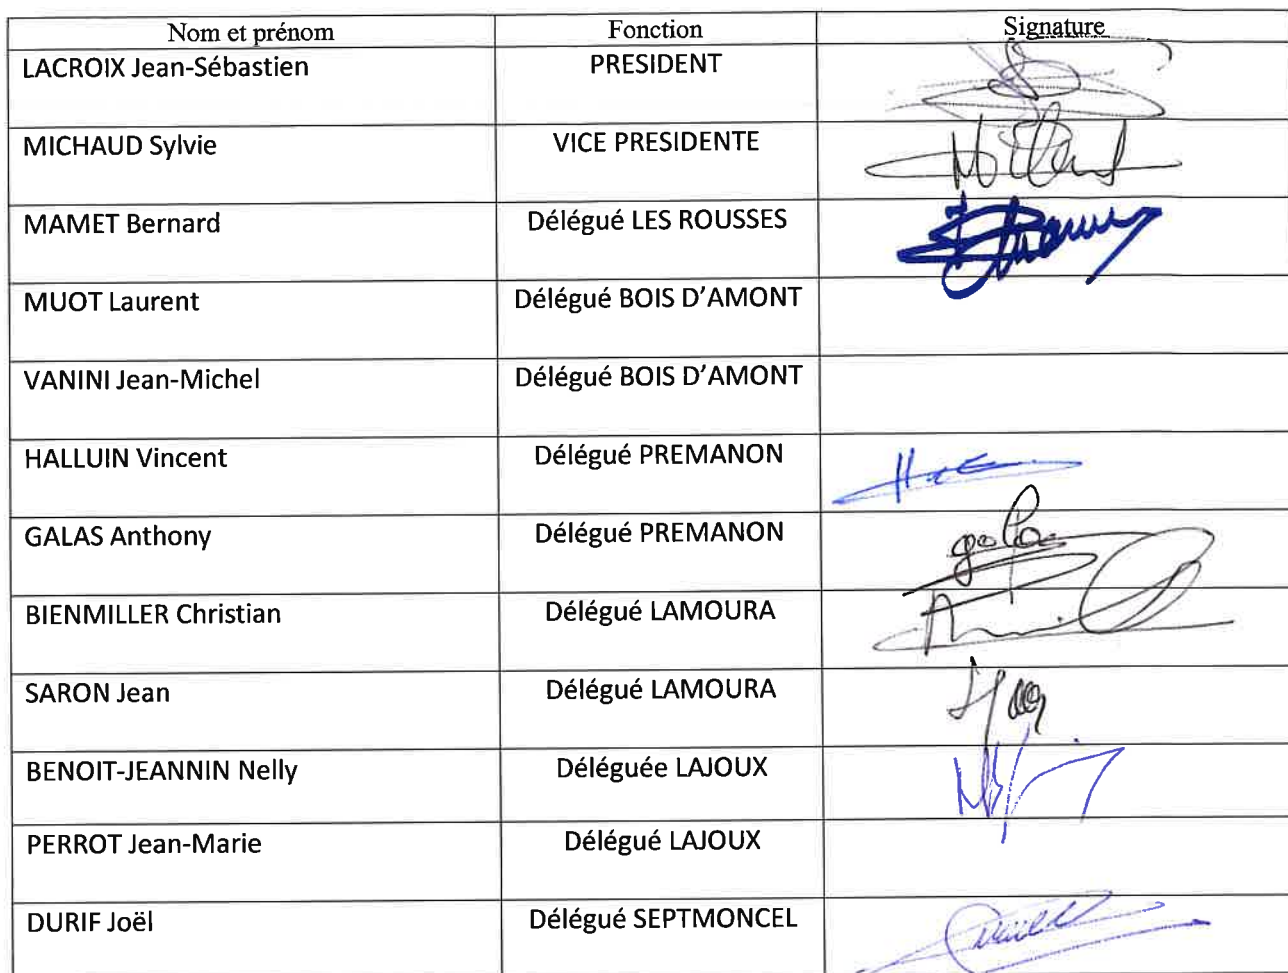 Nom et prénom Fonction Signature
LACROIX Jean-Sébastien PRESIDENT
MICHAUD Sylvie VICE PRESIDENTE
MAMET Bernard Délégué LES ROUSSES
MUOT Laurent Délégué BOIS D'AMONT
VANINI Jean-Michel Délégué BOIS D'AMONT
HALLUIN Vincent Délégué PREMANON
GALAS Anthony Délégué PREMANON
BIENMILLER Christian Délégué LAMOURA
SARON Jean Délégué LAMOURA
BENOIT-JEANNIN Nelly Déléguée LAJOUX
PERROT Jean-Marie Délégué LAJOUX
DURIF Joël Délégué SEPTMONCEL